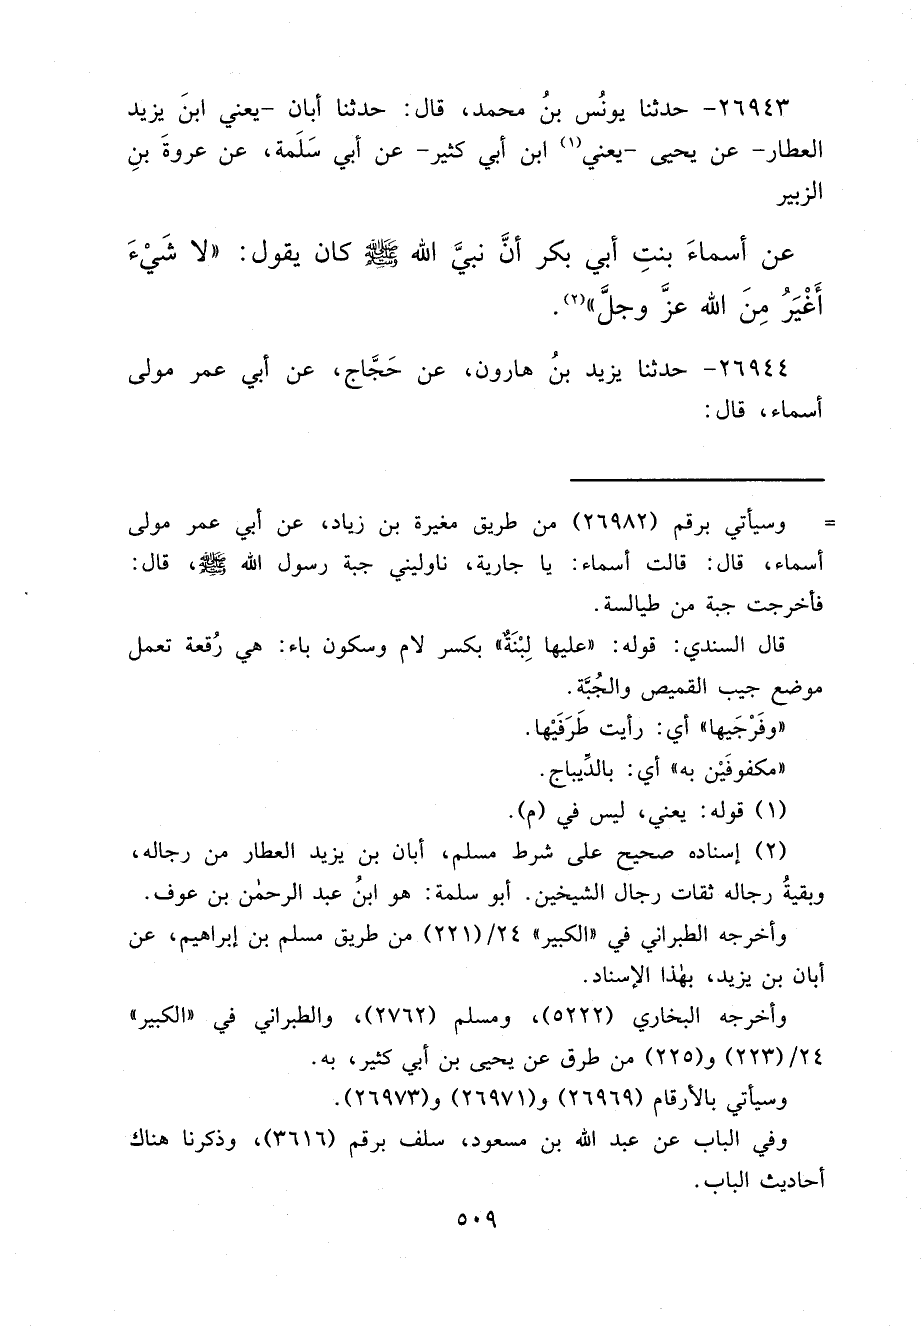 ٢٦٩٤٣- حدثنا يونُس بنُ محمد، قال: حدثنا أبان -يعني ابنَ يزيد
العطار- عن يحيى -يعني(١) ابن أبي كثير- عن أبي سَلَمة، عن عروةَ بنِ
الزبير
عن أسماءَ بنتِ أبي بكر أنَّ نبيَّ الله ﷺ كان يقول: «لا شَيْءَ
أَغْيَرُ مِنَ الله عزَّ وجلَّ»(٢).
٢٦٩٤٤- حدثنا يزيد بنُ هارون، عن حَجَّاج، عن أبي عمر مولى
أسماء، قال:
= وسيأتي برقم (٢٦٩٨٢) من طريق مغيرة بن زياد، عن أبي عمر مولى
أسماء، قال: قالت أسماء: يا جارية، ناوليني جبة رسول الله ﷺ، قال:
فأخرجت جبة من طيالسة.
قال السندي: قوله: «عليها لِبْنَةٌ» بكسر لام وسكون باء: هي رُقعة تعمل
موضع جيب القميص والجُبَّة.
«وفَرْجَيها» أي: رأيت طَرَفَيْها.
«مكفوفَيْن به» أي: بالدِّيباج.
(١) قوله: يعني، ليس في (م).
(٢) إسناده صحيح على شرط مسلم، أبان بن يزيد العطار من رجاله،
وبقيةُ رجاله ثقات رجال الشيخين. أبو سلمة: هو ابنُ عبد الرحمٰن بن عوف.
وأخرجه الطبراني في «الكبير» ٢٤/(٢٢١) من طريق مسلم بن إبراهيم، عن
أبان بن يزيد، بهٰذا الإسناد.
وأخرجه البخاري (٥٢٢٢)، ومسلم (٢٧٦٢)، والطبراني في «الكبير»
٢٤/(٢٢٣) و(٢٢٥) من طرق عن يحيى بن أبي كثير، به.
وسيأتي بالأرقام (٢٦٩٦٩) و(٢٦٩٧١) و(٢٦٩٧٣).
وفي الباب عن عبد الله بن مسعود، سلف برقم (٣٦١٦)، وذكرنا هناك
أحاديث الباب.
٥٠٩